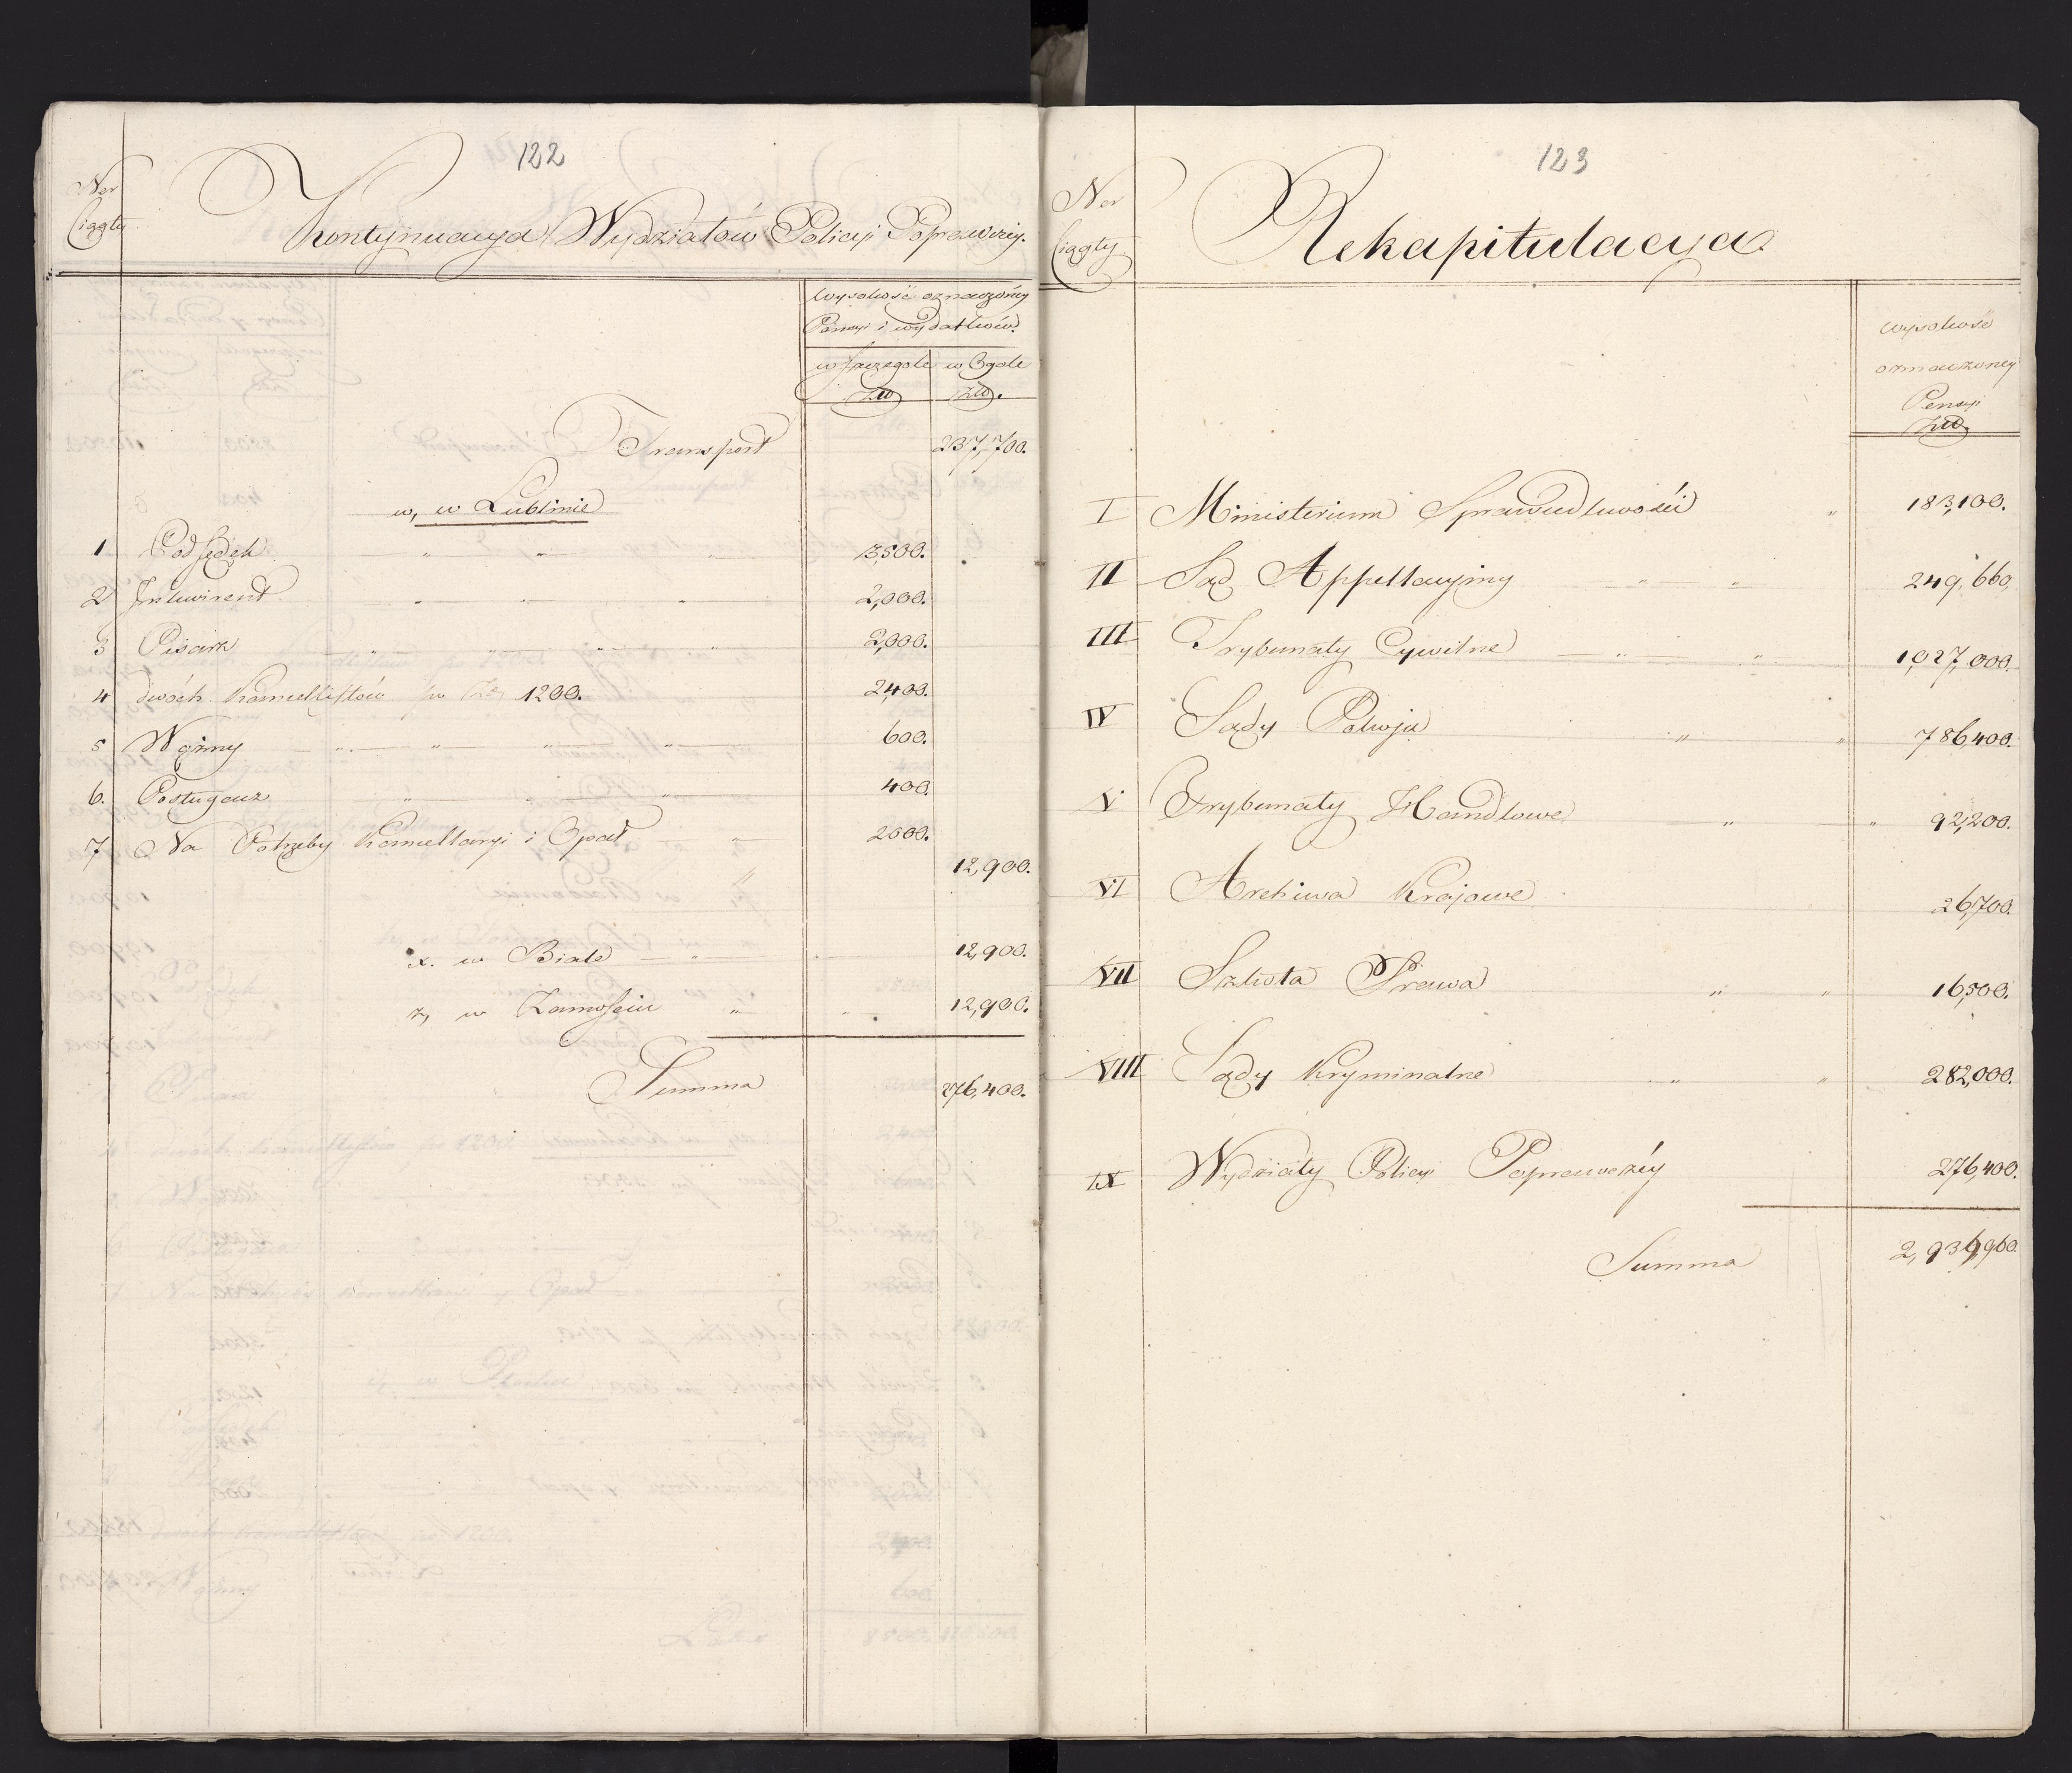 122
Ner
Ciągły
Kontynuacya Wydziałów Policyi Poprawczey.
wysokość oznaczoney
Pensyi i wydatków.
w szczegole w Ogole
Złp Złp.
Transport 237,700.
w, w Lublinie
1 Podsędek " " " 3,500.
2 Inkwirent " " " 2,000.
3 Pisarz " " " " 2,000.
4 dwóch Kancellistów po Złp 1200. 2,400.
5 Woźny " " " " 600.
6. Posługacz " " " 400.
7 Na Potrzeby Kancellaryi i Opał " 2000.
" 12,900.
x. w Biale " " 12,900.
z, w Zamościu " " 12,900.
Summa 276,400.
123
Ner
Ciągły
Rekapitulacya
wysokość
oznaczoney
Pensyi
Złp.
I Ministerium Sprawiedliwości " 183,100.
II Sąd Appellacyjny " " 249,660,
III Trybunały Cywilne " " 1,027,000.
IV Sądy Pokoju " " 786,400.
V Trybunały Handlowe " " 92,200.
VI Archiwa Krajowe 26,700.
VII Szkoła Prawa " " 16,500.
VIII Sądy Kryminalne " " 282,000.
IX Wydziały Policyi Poprawczéy 276,400.
Summa 2,939,960.